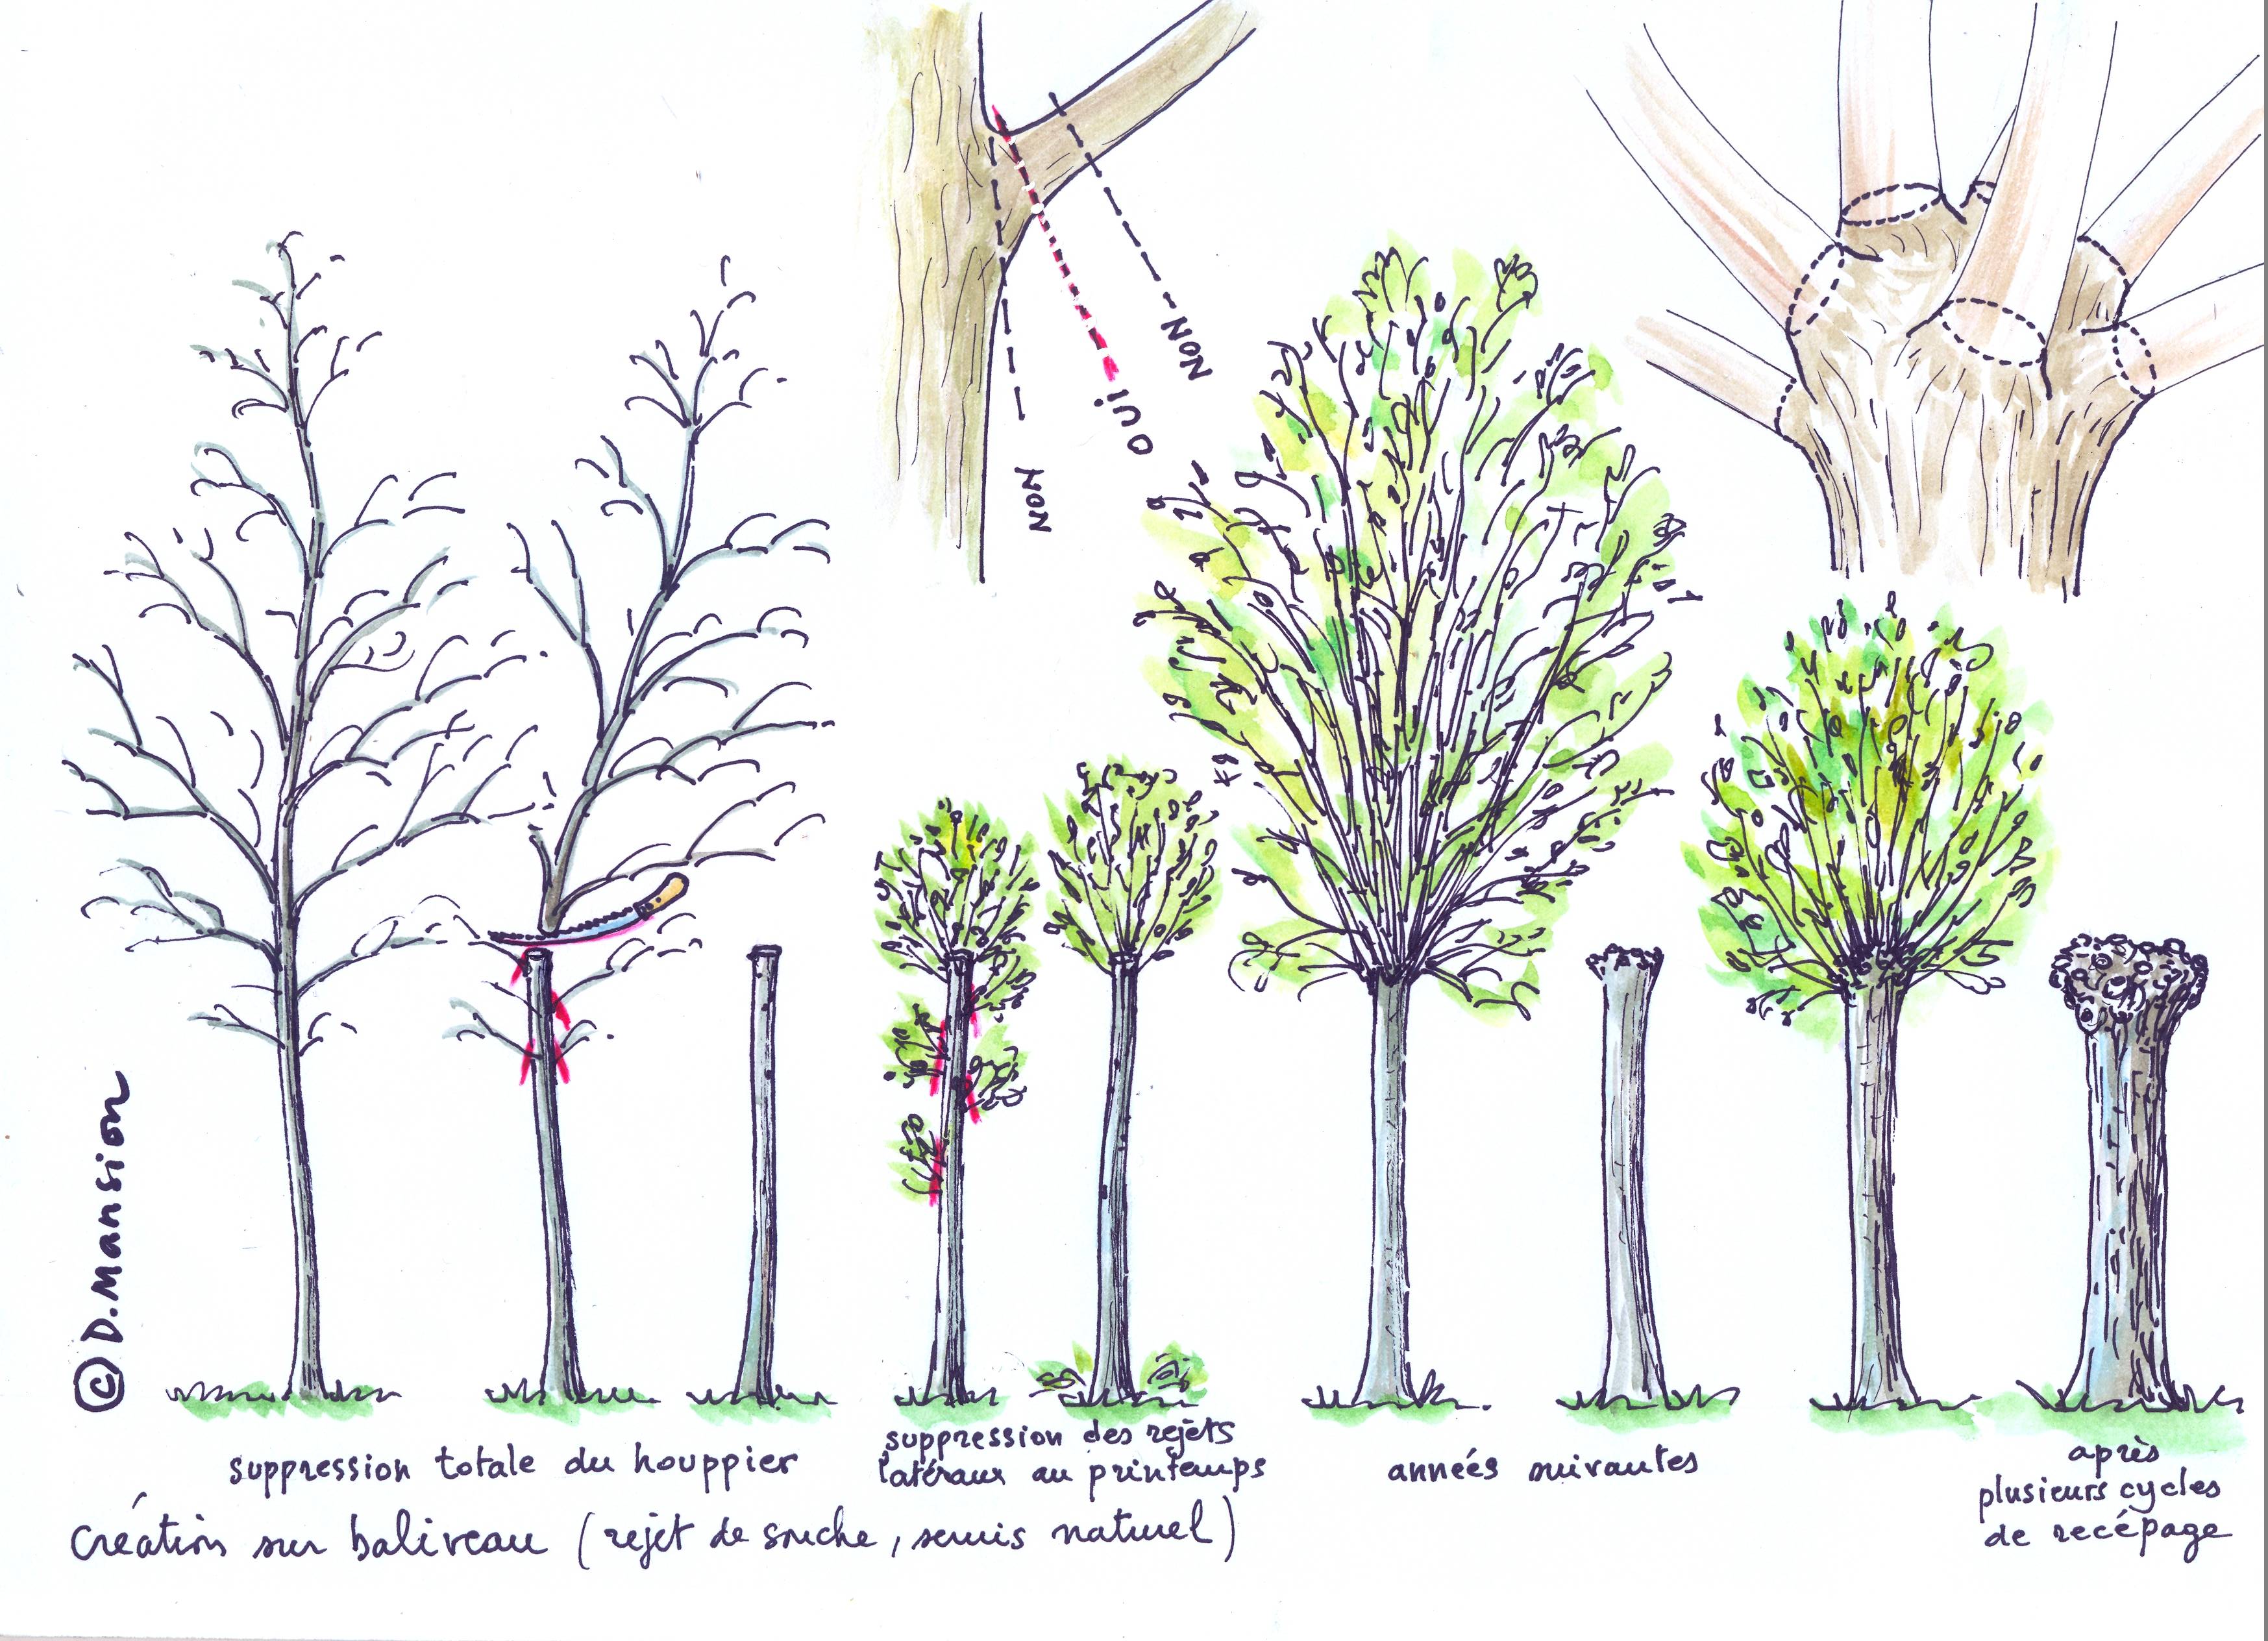 NON
OUI
NON
© D. Mansion
suppression totale du houppier
suppression des rejets
latéraux au printemps
années suivantes
après
plusieurs cycles
de recépage
création sur baliveau (rejet de souche, semis naturel)